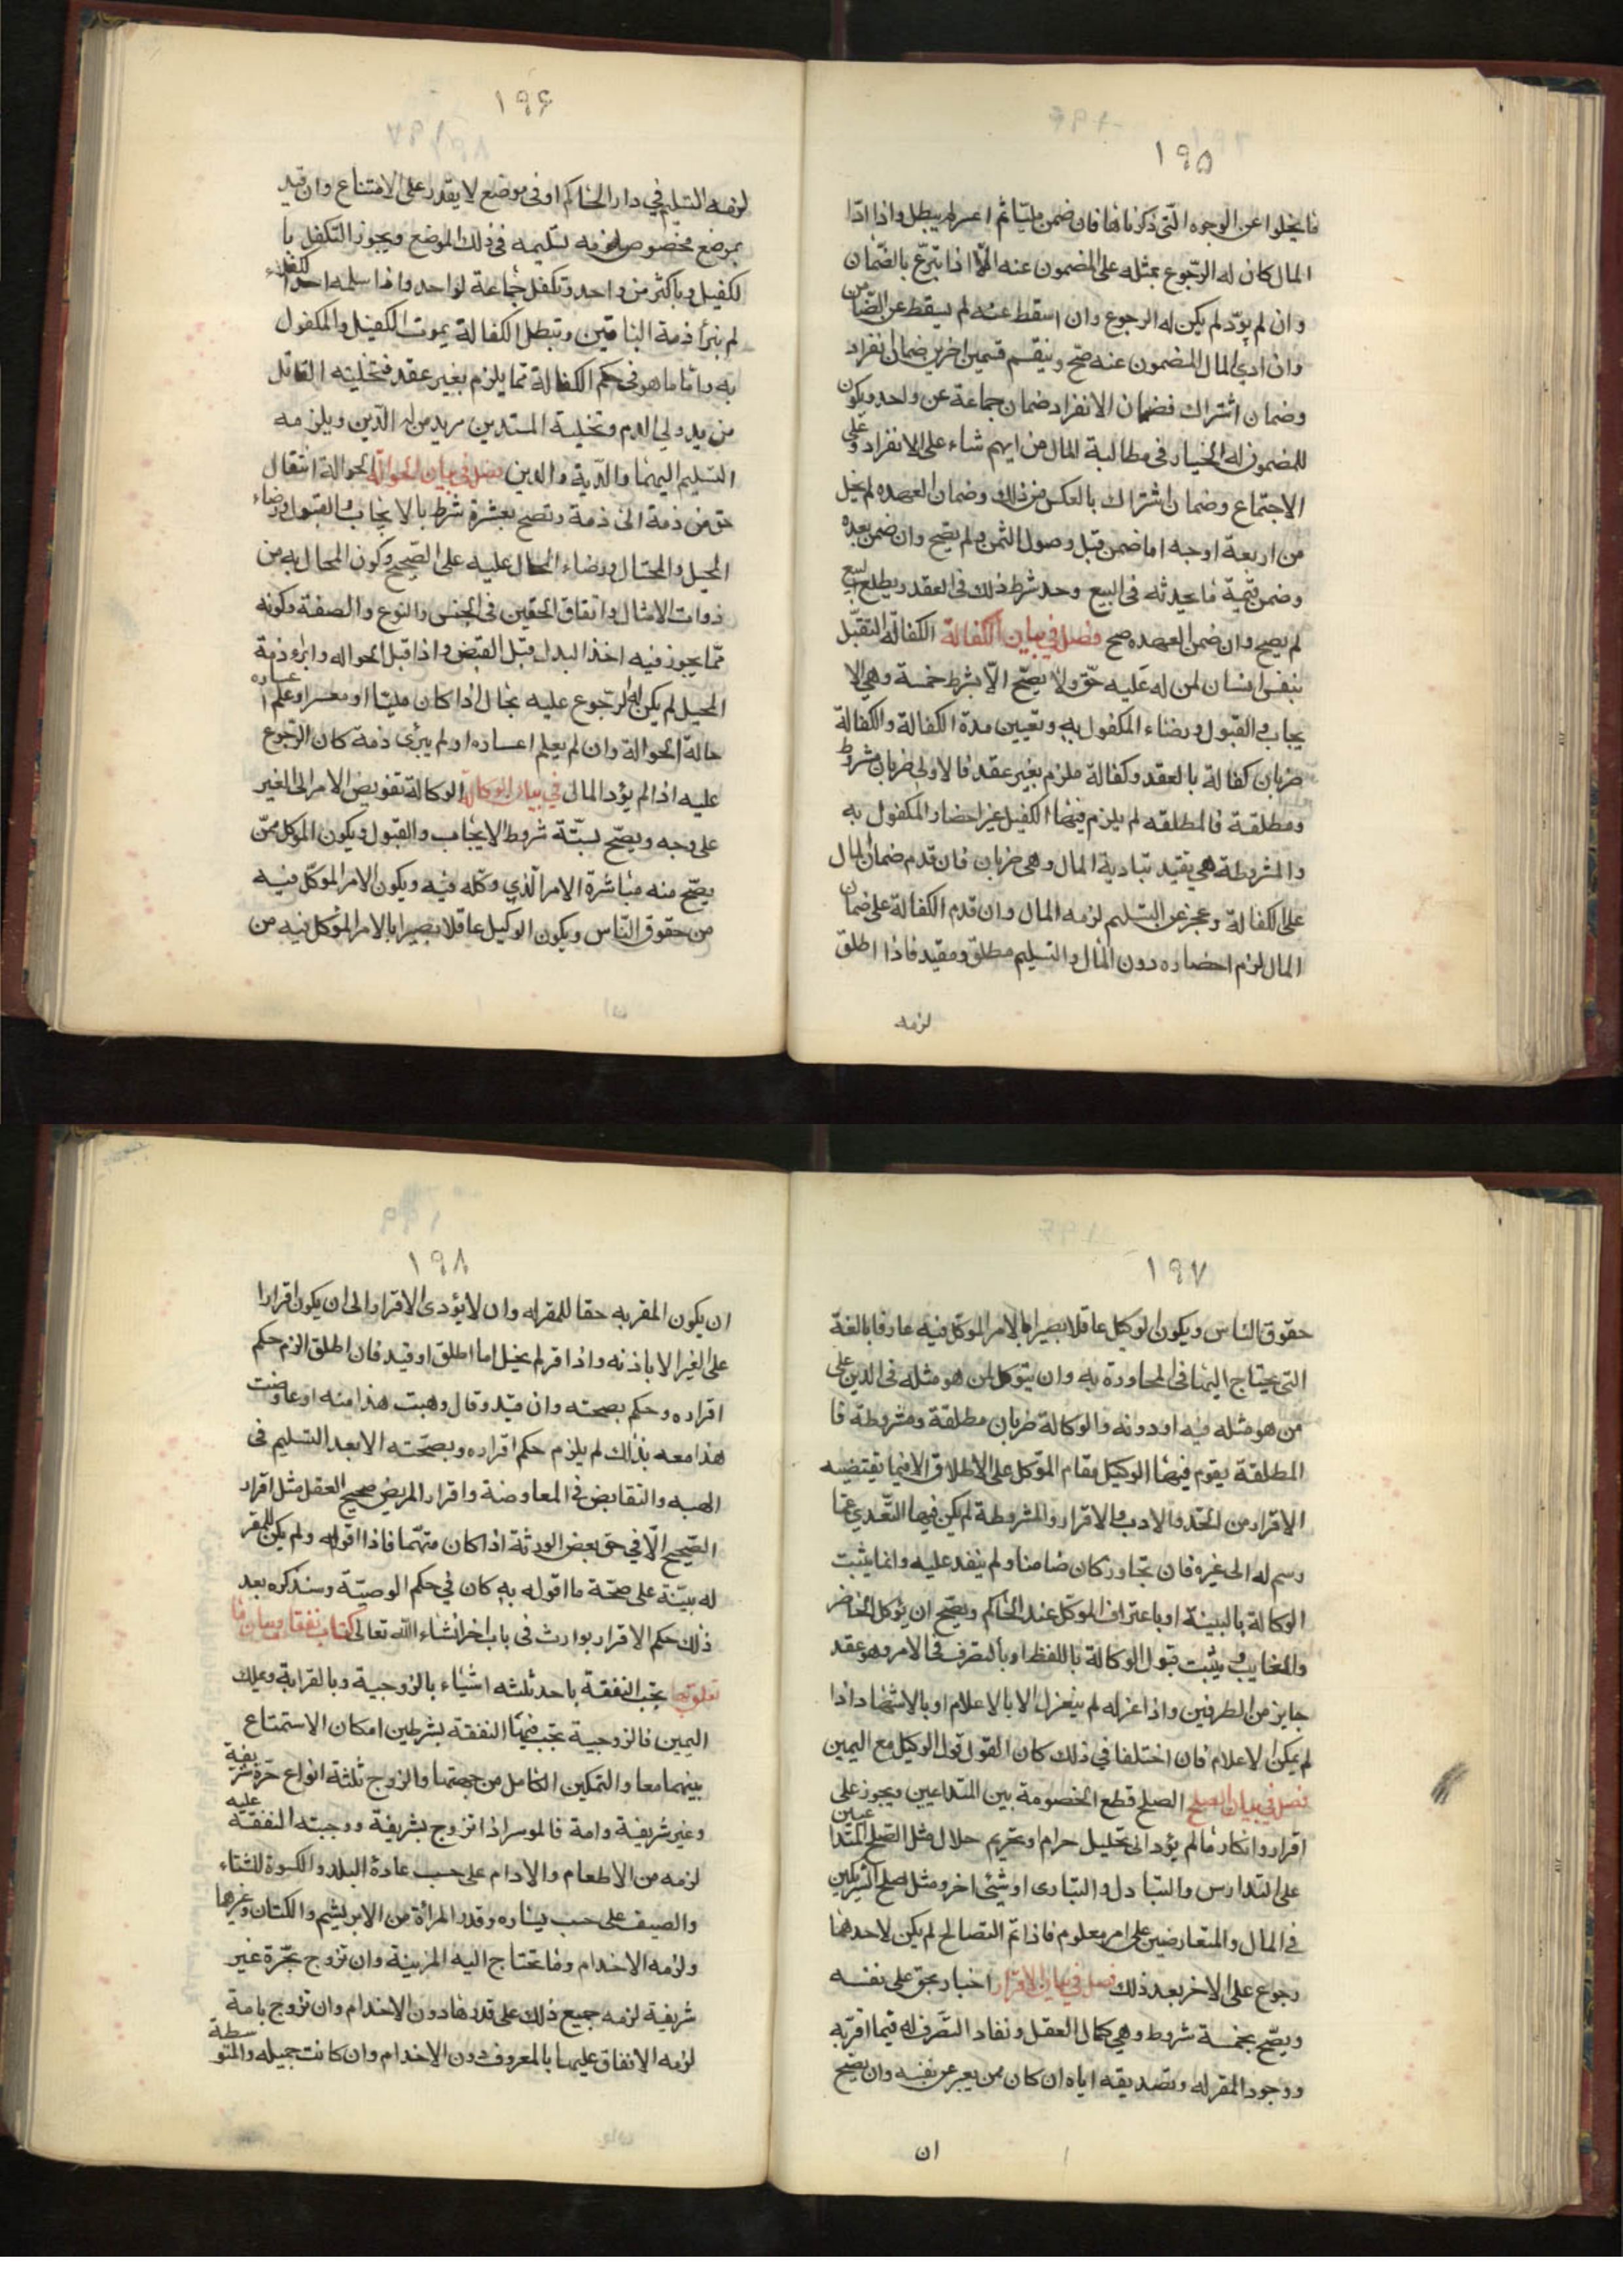 ١٩٥
فا يخلوا عن الوجوه الّتى ذكرناها فان ضمن مليّا ثم اعسر لم يبطل واذا ادّا
المال كان له الرّجوع بمثله على المضمون عنه الّا اذا تبرّع بالضّمان
وان لم يودّ لم يكن له الرجوع وان اسقط عنه لم يسقط عن الضّامن
وان ادي المال المضمون عنه صّح وينقسم قسمين اخرين ضمان انفراد
وضمان اشتراك فضمان الانفراد ضمان جماعة عن واحد ويكون
للمضمون له الخيار فى مطالبة المال من ايهم شاء على الانفراد وعلى
الاجتماع وضمان اشتراك بالعكس من ذلك وضمان العهده لم يخل
من اربعة اوجه اما ضمن قبل وصول الثمن ولم يصّح وان ضمن بعده
وضمن قيمة ما يحدثه فى البيع وحد شرط ذلك فى العقد ويطلع البيع
لم يصح وان ضمن العهده صح فصل فى بيان الكفالة الكفالة التقبّل
بنفس انسان لمن له عليه حقّ ولا يصّح الّا بشرط خمسة وهي الا
يجاب والقبول ورضاء المكفول به وتعيين مدة الكفالة والكفالة
ضربان كفالة بالعقد وكفالة ملزم بغير عقد فالاولى ضربان مشروط
ومطلقة فالمطلقه لم يلزم فيها الكفيل غير احضار المكفول به
والمشروطة هي يقيد بتادية المال وهى ضربان فان قدم ضمان المال
على الكفالة وعجز عن التسليم لزمه المال وان قدم الكفالة على ضمان
المال لزم احضاره دون المال والتسليم مطلق ومقيد فاذا اطلق
لزمه
١٩۶
لزمه التسليم في دار الحاكم او فى موضع لا يقدر على الامتناع وان قيد
بموضع مخصوص لزمه تسليمه فى ذلك الموضع ويجوز التكفل با
لكفيل وباكثر من واحد وتكفل جماعة لواحد واذا سلمه احد الكفلاء
لم يبرأ ذمة الباقين وتبطل الكفالة بموت الكفيل والمكفول
به واما ما هو فى حكم الكفالة مما يلزم بغير عقد فتخلية القاتل
من يد ولي الدم وتخلية المستدين من يد من له الدّين ويلزمه
التسليم اليهما والدّية والدين فصل فى بيان الحوالة الحوالة انتقال
حق من ذمة الى ذمة وتصح بعشرة شرط بالايجاب والقبول ورضاء
المحيل والمحتال ورضاء المحال عليه على الصّحيح وكون المحال به من
ذوات الامثال واتفاق الحقين فى الجنس والنوع والصفة وكونه
ممّا يجوز فيه اخذ البدل قبل القبض واذا قبل الحواله وابرء ذمة
المحيل لم يكن له الرجوع عليه بحال اذا كان مليّا او معسرا وعلم اعساره
حالة الحوالة وان لم يعلم اعساره او لم يبرئ ذمة كان الرّجوع
عليه اذا لم يؤد المال في بيان الوكالة الوكالة تفويض الامر الى الغير
على وجه ويصّح بستّة شروط الايجاب والقبول ويكون الموكل ممّن
يصّح منه مباشرة الامر الّذي وكّله فيه ويكون الامر الموكّل فيه
من حقوق النّاس ويكون الوكيل عاقلا بصيرا بالامر الموّكل فيه من
١٩٧
حقوق الناس ويكون الوكيل عاقلا بصيرا بالامر الموكّل فيه عارفا بالغة
التى يحتاج اليها فى المحاورة به وان يتوكل لمن هو مثله فى الدين على
من هو مثله فيه او دونه والوكالة ضربان مطلقة ومشروطة فا
المطلقة يقوم فيها الوكيل مقام الموّكل على الاطلاق الا فيما يقتضيه
الاقرار من الحّد والادب والاقرار والمشروطة لم يكن فيها التّعدي عمّا
رسم له الى غيره فان تجاوز كان ضامنا ولم ينفد عليه وانما يثبت
الوكالة بالبينة او باعتراف الموكّل عند الحاكم ويصّح ان يؤكل الحاضر
والغايب ويثبت قبول الوكالة باللفظ او بالتصرف فى الامر وهو عقد
جايز من الطرفين واذا عزله لم ينعزل الا بالاعلام او بالاشهاد اذا
لم يمكن الاعلام فان اختلفا في ذلك كان القول قول الوكيل مع اليمين
فصل في بيان الصلح الصلح قطع الخصومة بين المتداعيين ويجوز على
اقرار وانكار ما لم يؤد الى تحليل حرام او تحريم حلال مثل الصّلح المتداعيين
على التدارس والتبادل والتبارى او شيئ اخر ومثل صلح الشريكين
فى المال والمتعارضين على امر معلوم فاذا تّم التصالح لم يكن لاحدهما
رجوع على الاخر بعد ذلك فصل في بيان الاقرار اخبار بحق على نفسه
ويصّح بخمسة شروط وهي كمال العقل ونفاد التصّرف له فيما اقرّ به
ووجود المقر له وتصديقه اياه ان كان ممن يعبر عن نفسه وان يصّح
ان
١٩٨
ان يكون المقر به حقا للمقر له وان لا يؤدى الاقرار الى ان يكون اقرارا
على الغير الا باذنه واذا اقر لم يخل اما اطلق او قيد فان اطلق الزم حكم
اقراره وحكم بصحته وان قيد وقال وهبت هذا منه او عاوضت
هذا معه بذلك لم يلزم حكم اقراره وبصحّته الا بعد التسليم فى
الهبه والتقابض فى المعاوضة واقرار المريض صحيح العقل مثل اقرار
الصّحيح الّا في حق بعض الورثة اذا كان متّهما فاذا اقر له ولم يكن للمقر
له بيّنة على صحّة ما اقر له به كان في حكم الوصيّة وسنذكره بعد
ذلك حكم الاقرار بوارث فى باب اخر انشاء اللّه تعالى كتاب نفقا وبيان ما
تعلق بها يجب النفقة باحد ثلثه اشياء بالزوجية وبالقرابة وبملك
اليمين فالزوجية يجب فيها النفقة بشرطين امكان الاستمتاع
بينهما معا والتمكين الكامل من جهتها والزوج ثلثة انواع حرّة شريفة
وغير شريفة وامة فالموسر اذا تزوج بشريفة ووجبته عليه النفقة
لزمه من الاطعام والادام على حسب عادة البلد والكسوة للشتاء
والصيف على حسب يساره وقدر المرأة من الابريشم والكتان وغيرها
ولزمه الاخدام وما يحتاج اليه المزينة وان تزوج بحّرة غير
شريفة لزمه جميع ذلك على قدرها دون الاخدام وان تزوج بامة
لزمه الانفاق عليها بالمعروف دون الاخدام وان كانت جميله والمتوسطة